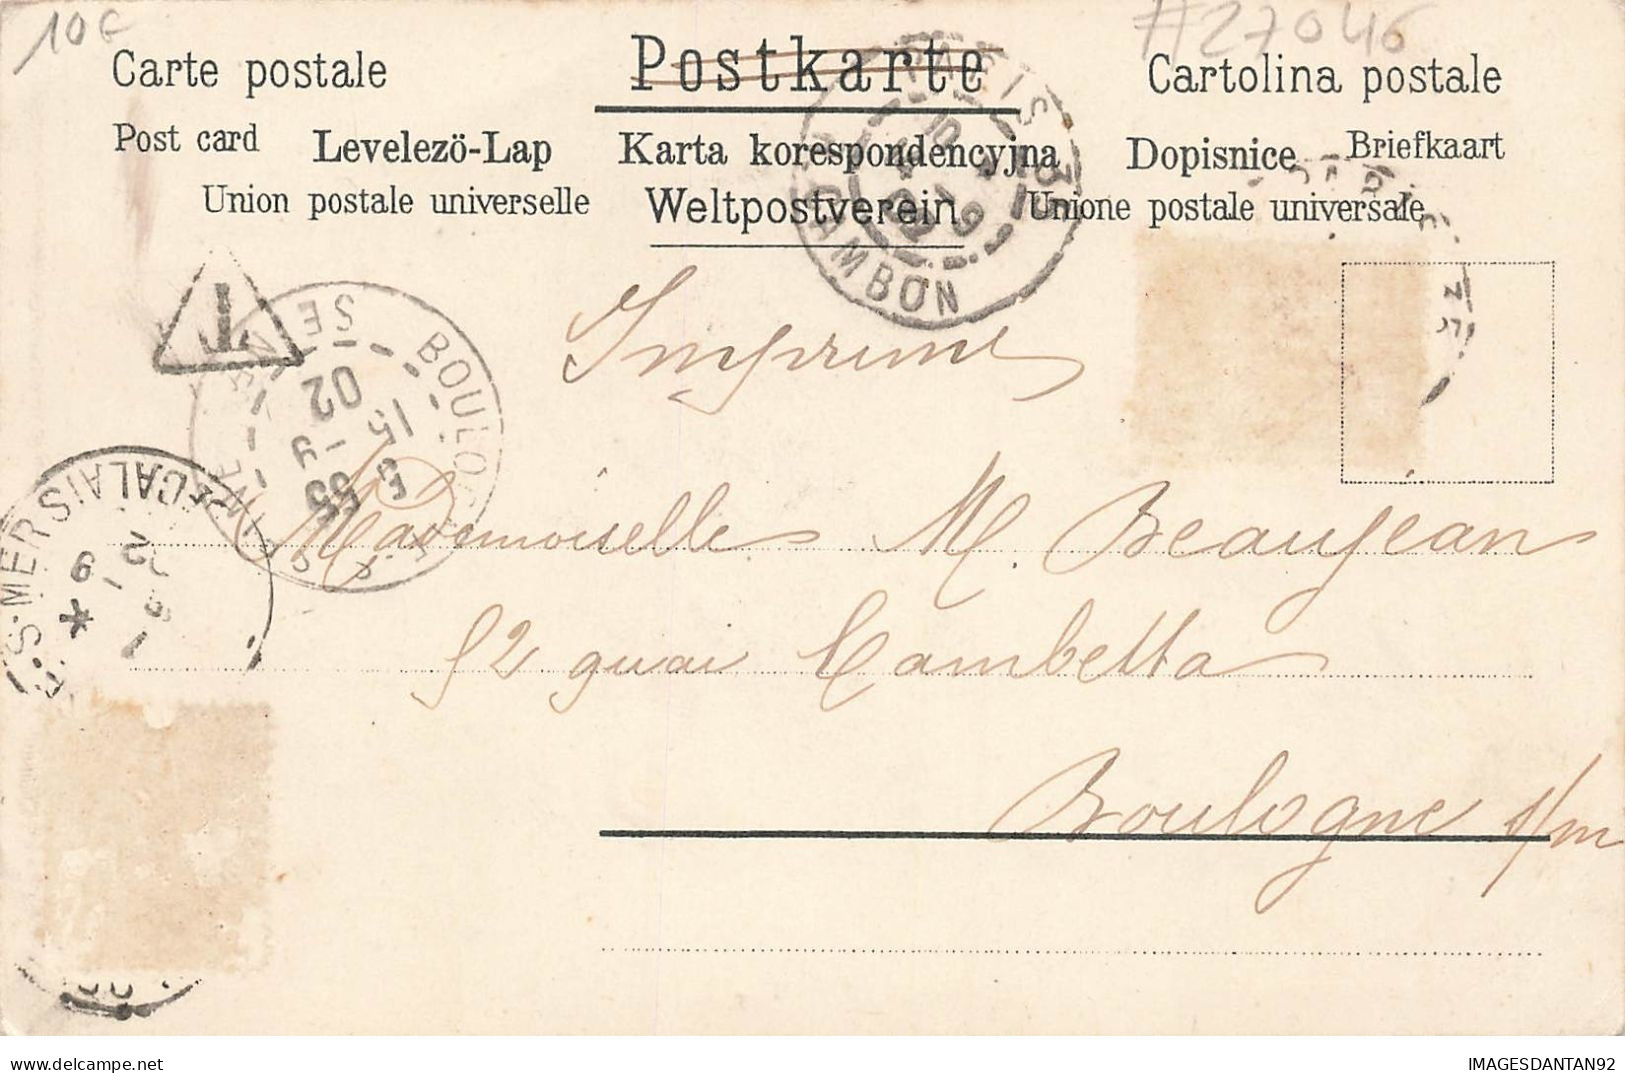 10€
#27046
Carte postale
Postkarte
Cartolina postale
Post card
Levelezö-Lap
Karta korespondencyjna
Dopisnice
Briefkaart
Union postale universelle
Weltpostverein
Unione postale universale
PARIS 35
CAMBON
T
Imprimé
BOULOGNE
02
15
-9
55
S-MER
CALAIS
Mademoiselle M. Beaujean
92 quai Gambetta
Boulogne s/m
delcampe.net
IMAGESDANTAN92